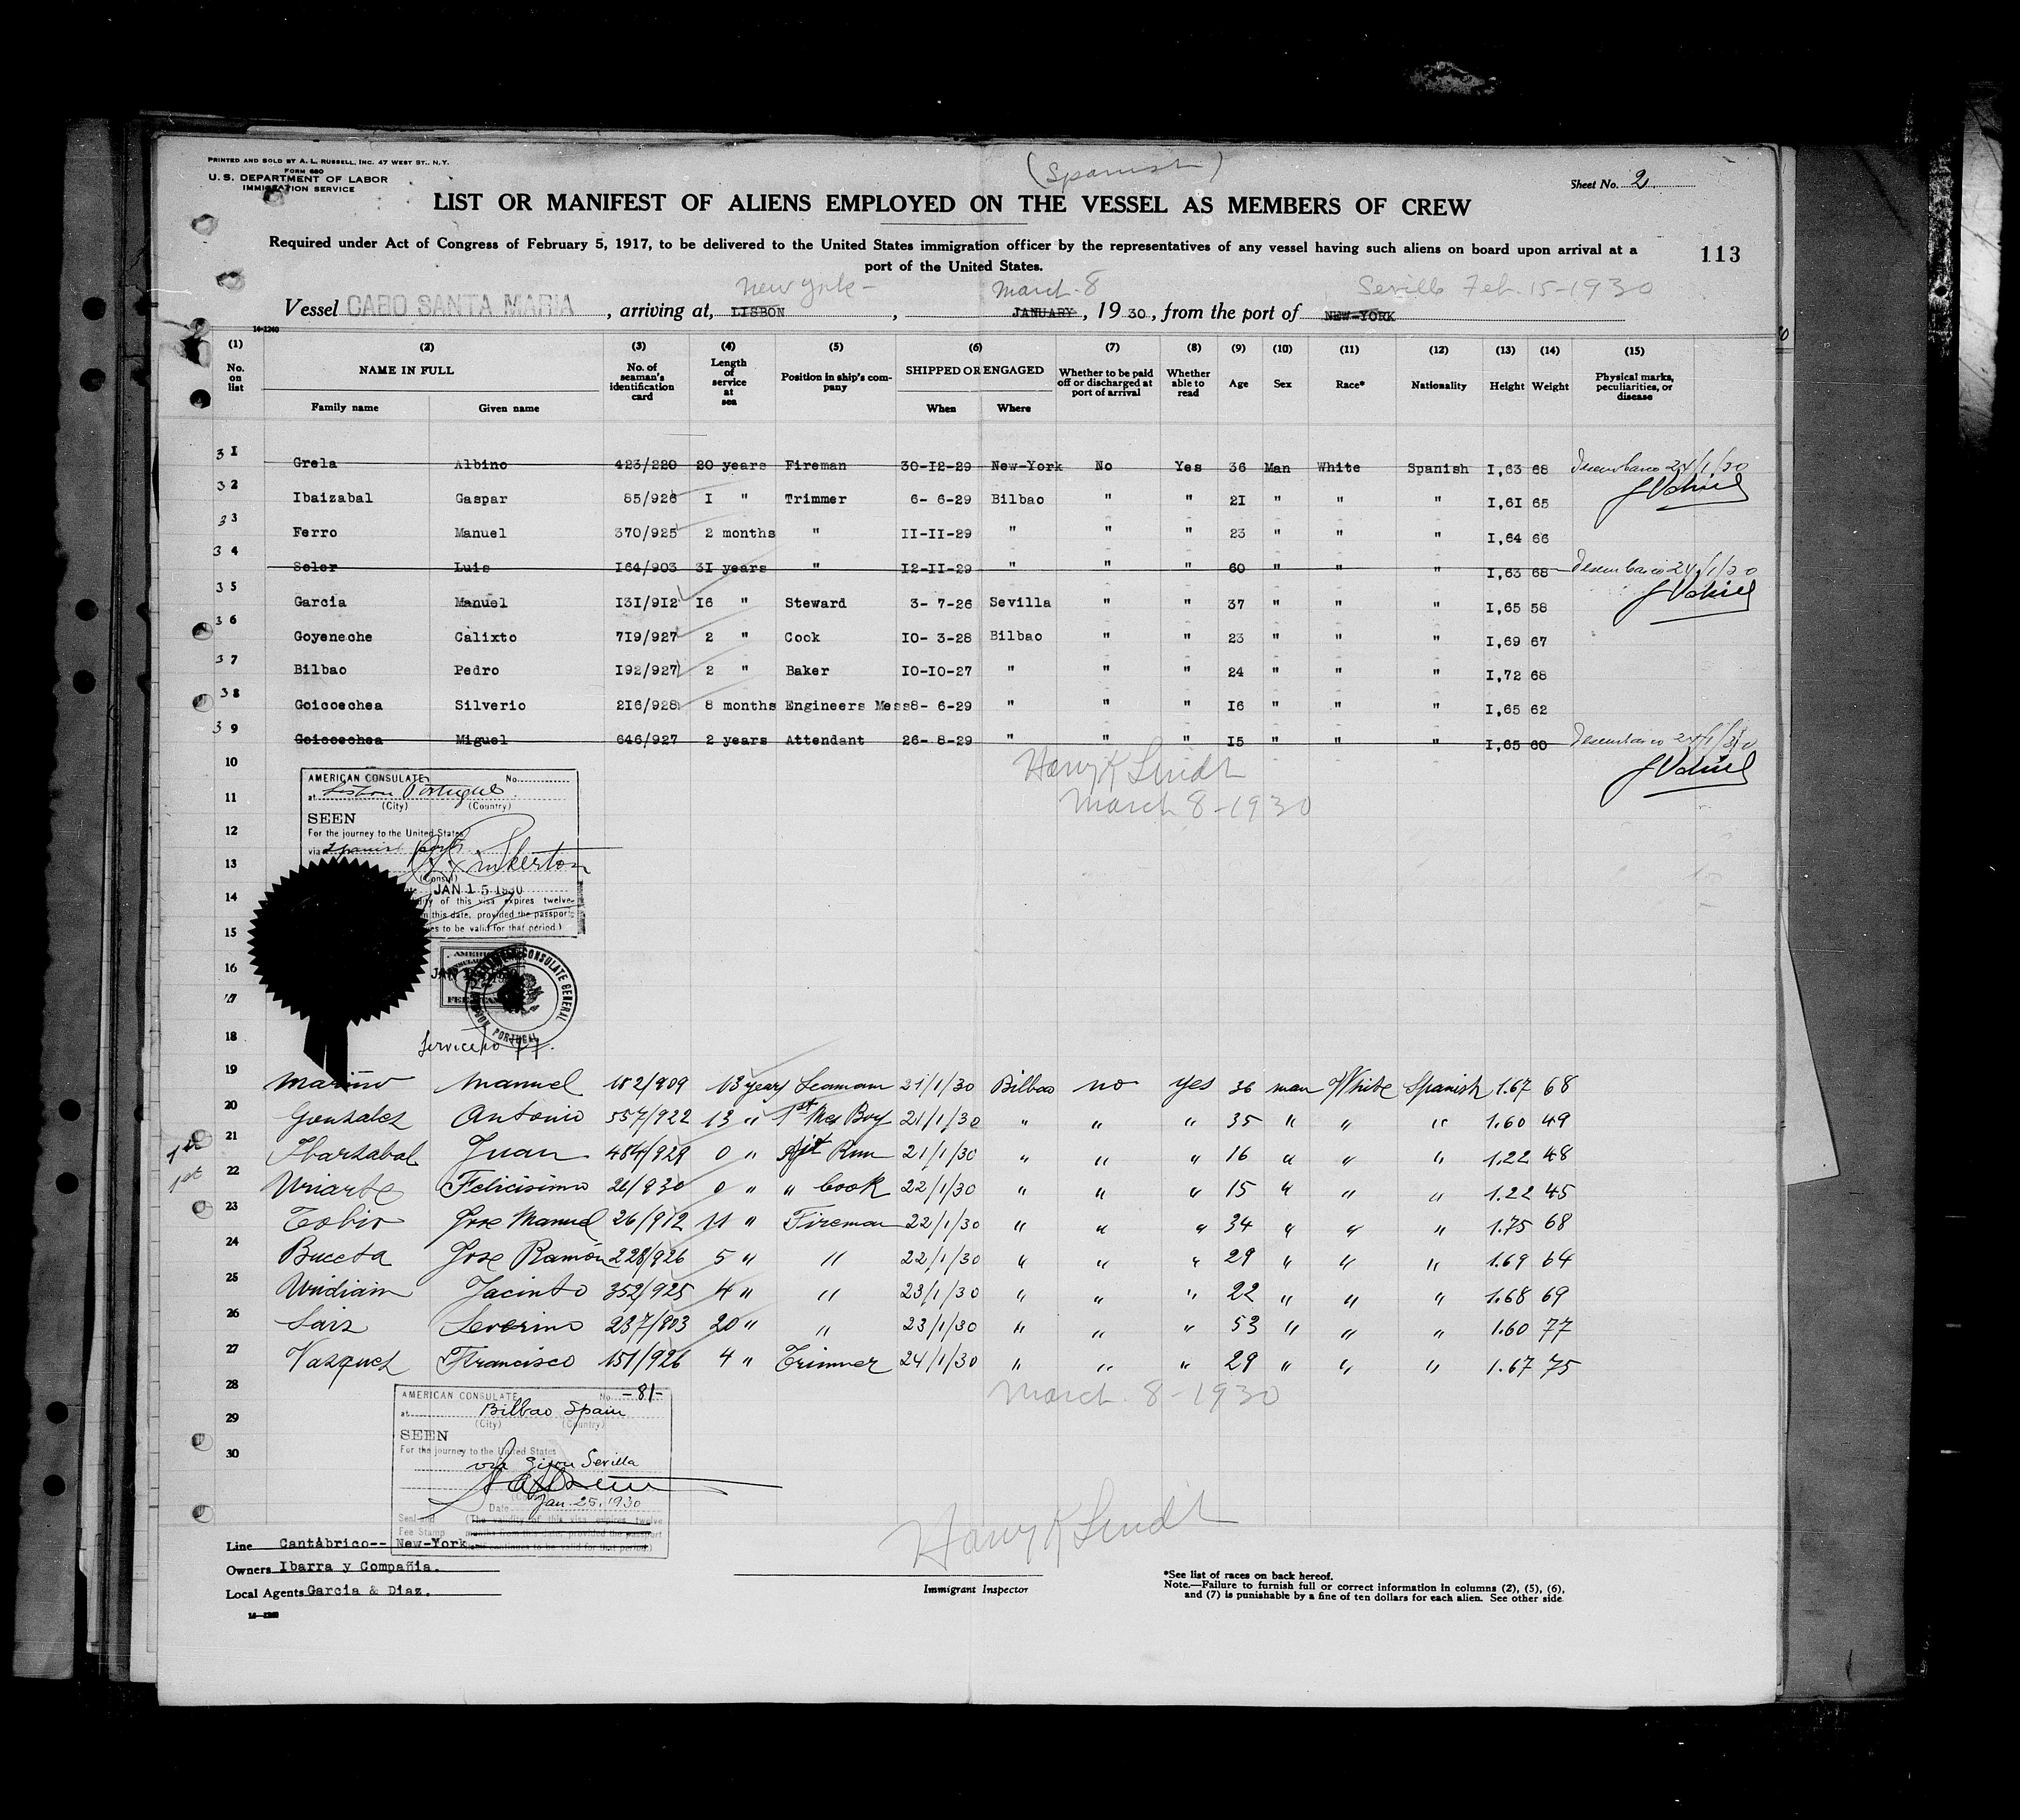 (Spanish)
PRINTED AND SOLD BY A. L. RUSSELL, INC. 47 WEST ST., N.Y.
FORM 680
U. S. DEPARTMENT OF LABOR
IMMIGRATION SERVICE
Sheet No. 2
LIST OR MANIFEST OF ALIENS EMPLOYED ON THE VESSEL AS MEMBERS OF CREW
Required under Act of Congress of February 5, 1917, to be delivered to the United States immigration officer by the representatives of any vessel having such aliens on board upon arrival at a
port of the United States.
113
New York - March 8 Sevilla Feb. 15-1930
Vessel CABO SANTA MARIA, arriving at, LISBON, JANUARY, 1930, from the port of NEW-YORK
14-1240
(1) (2) (3) (4) (5) (6) (7) (8) (9) (10) (11) (12) (13) (14) (15)
No. on list NAME IN FULL No. of seaman's identification card Length of service at sea Position in ship's company SHIPPED OR ENGAGED Whether to be paid off or discharged at port of arrival Whether able to read Age Sex Race* Nationality Height Weight Physical marks, peculiarities, or disease
Family name Given name When Where
31 Grela Albino 423/220 20 years Fireman 30-I2-29 New-York No Yes 36 Man White Spanish I,63 68 Desembarco 24/1/30
32 Ibaizabal Gaspar 85/926 I " Trimmer 6- 6-29 Bilbao " " 2I " " " I,6I 65
33 Ferro Manuel 370/925 2 months " II-II-29 " " " 23 " " " I,64 66
34 Soler Luis I64/903 3I years " I2-II-29 " " " 60 " " " I,63 68 Desembarco 24/1/30
35 Garcia Manuel I3I/9I2 I6 " Steward 3- 7-26 Sevilla " " 37 " " " I,65 58
36 Goyeneche Calixto 7I9/927 2 " Cook I0- 3-28 Bilbao " " 23 " " " I,69 67
37 Bilbao Pedro I92/927 2 " Baker I0-I0-27 " " " 24 " " " I,72 68
38 Goicoechea Silverio 2I6/928 8 months Engineers Mess 8- 6-29 " " " I6 " " " I,65 62
39 Goicoechea Miguel 646/927 2 years Attendant 26- 8-29 " " " I5 " " " I,65 60 Desembarco 24/1/30
10
Harry K Lindt
March 8-1930
AMERICAN CONSULATE No.
at Lisbon Portugal
(City) (Country)
11
SEEN
12
For the journey to the United States
via Spanish ports
13
(Consul)
JAN 15 1930
14
ity of this visa expires twelve
n this date, provided the passport
15
es to be valid for that period.)
16
17
CONSULATE GENERAL
PORTUGAL
18
19 Mariño Manuel 182/909 13 years Seaman 21/1/30 Bilbao no yes 36 man White Spanish 1.67 68
20 Gonzalez Antonio 557/922 13 " 1st Mes Boy 21/1/30 " " " 35 " " " 1.60 49
1st 21 Ibarzabal Juan 484/929 0 " 21/1/30 " " " 16 " " " 1.22 48
1st 22 Uriarte Felicisimo 26/930 0 " " Cook 22/1/30 " " " 15 " " " 1.22 45
23 Tobio Jose Manuel 26/912 11 " Fireman 22/1/30 " " " 34 " " " 1.75 68
24 Buceta Jose Ramón 228/926 5 " " 22/1/30 " " " 29 " " " 1.69 64
25 Jacinto 352/925 4 " " 23/1/30 " " " 22 " " " 1.68 69
26 Saiz Severino 237/903 20 " " 23/1/30 " " " 53 " " " 1.60 77
27 Vazquez Francisco 151/926 4 " Trimmer 24/1/30 " " " 29 " " " 1.67 75
28
March 8-1930
AMERICAN CONSULATE No. -81-
at Bilbao Spain
(City) (Country)
29
SEEN
For the journey to the United States
30
via Gijon Sevilla
Date Jan. 25, 1930
Seal and (The validity of this visa expires twelve
Fee Stamp months from this date, provided the passport
continues to be valid for that period.)
Harry K Lindt
Immigrant Inspector
Line Cantábrico-- New-York
Owners Ibarra y Compañia.
Local Agents Garcia & Diaz.
*See list of races on back hereof.
Note.—Failure to furnish full or correct information in columns (2), (5), (6),
and (7) is punishable by a fine of ten dollars for each alien. See other side